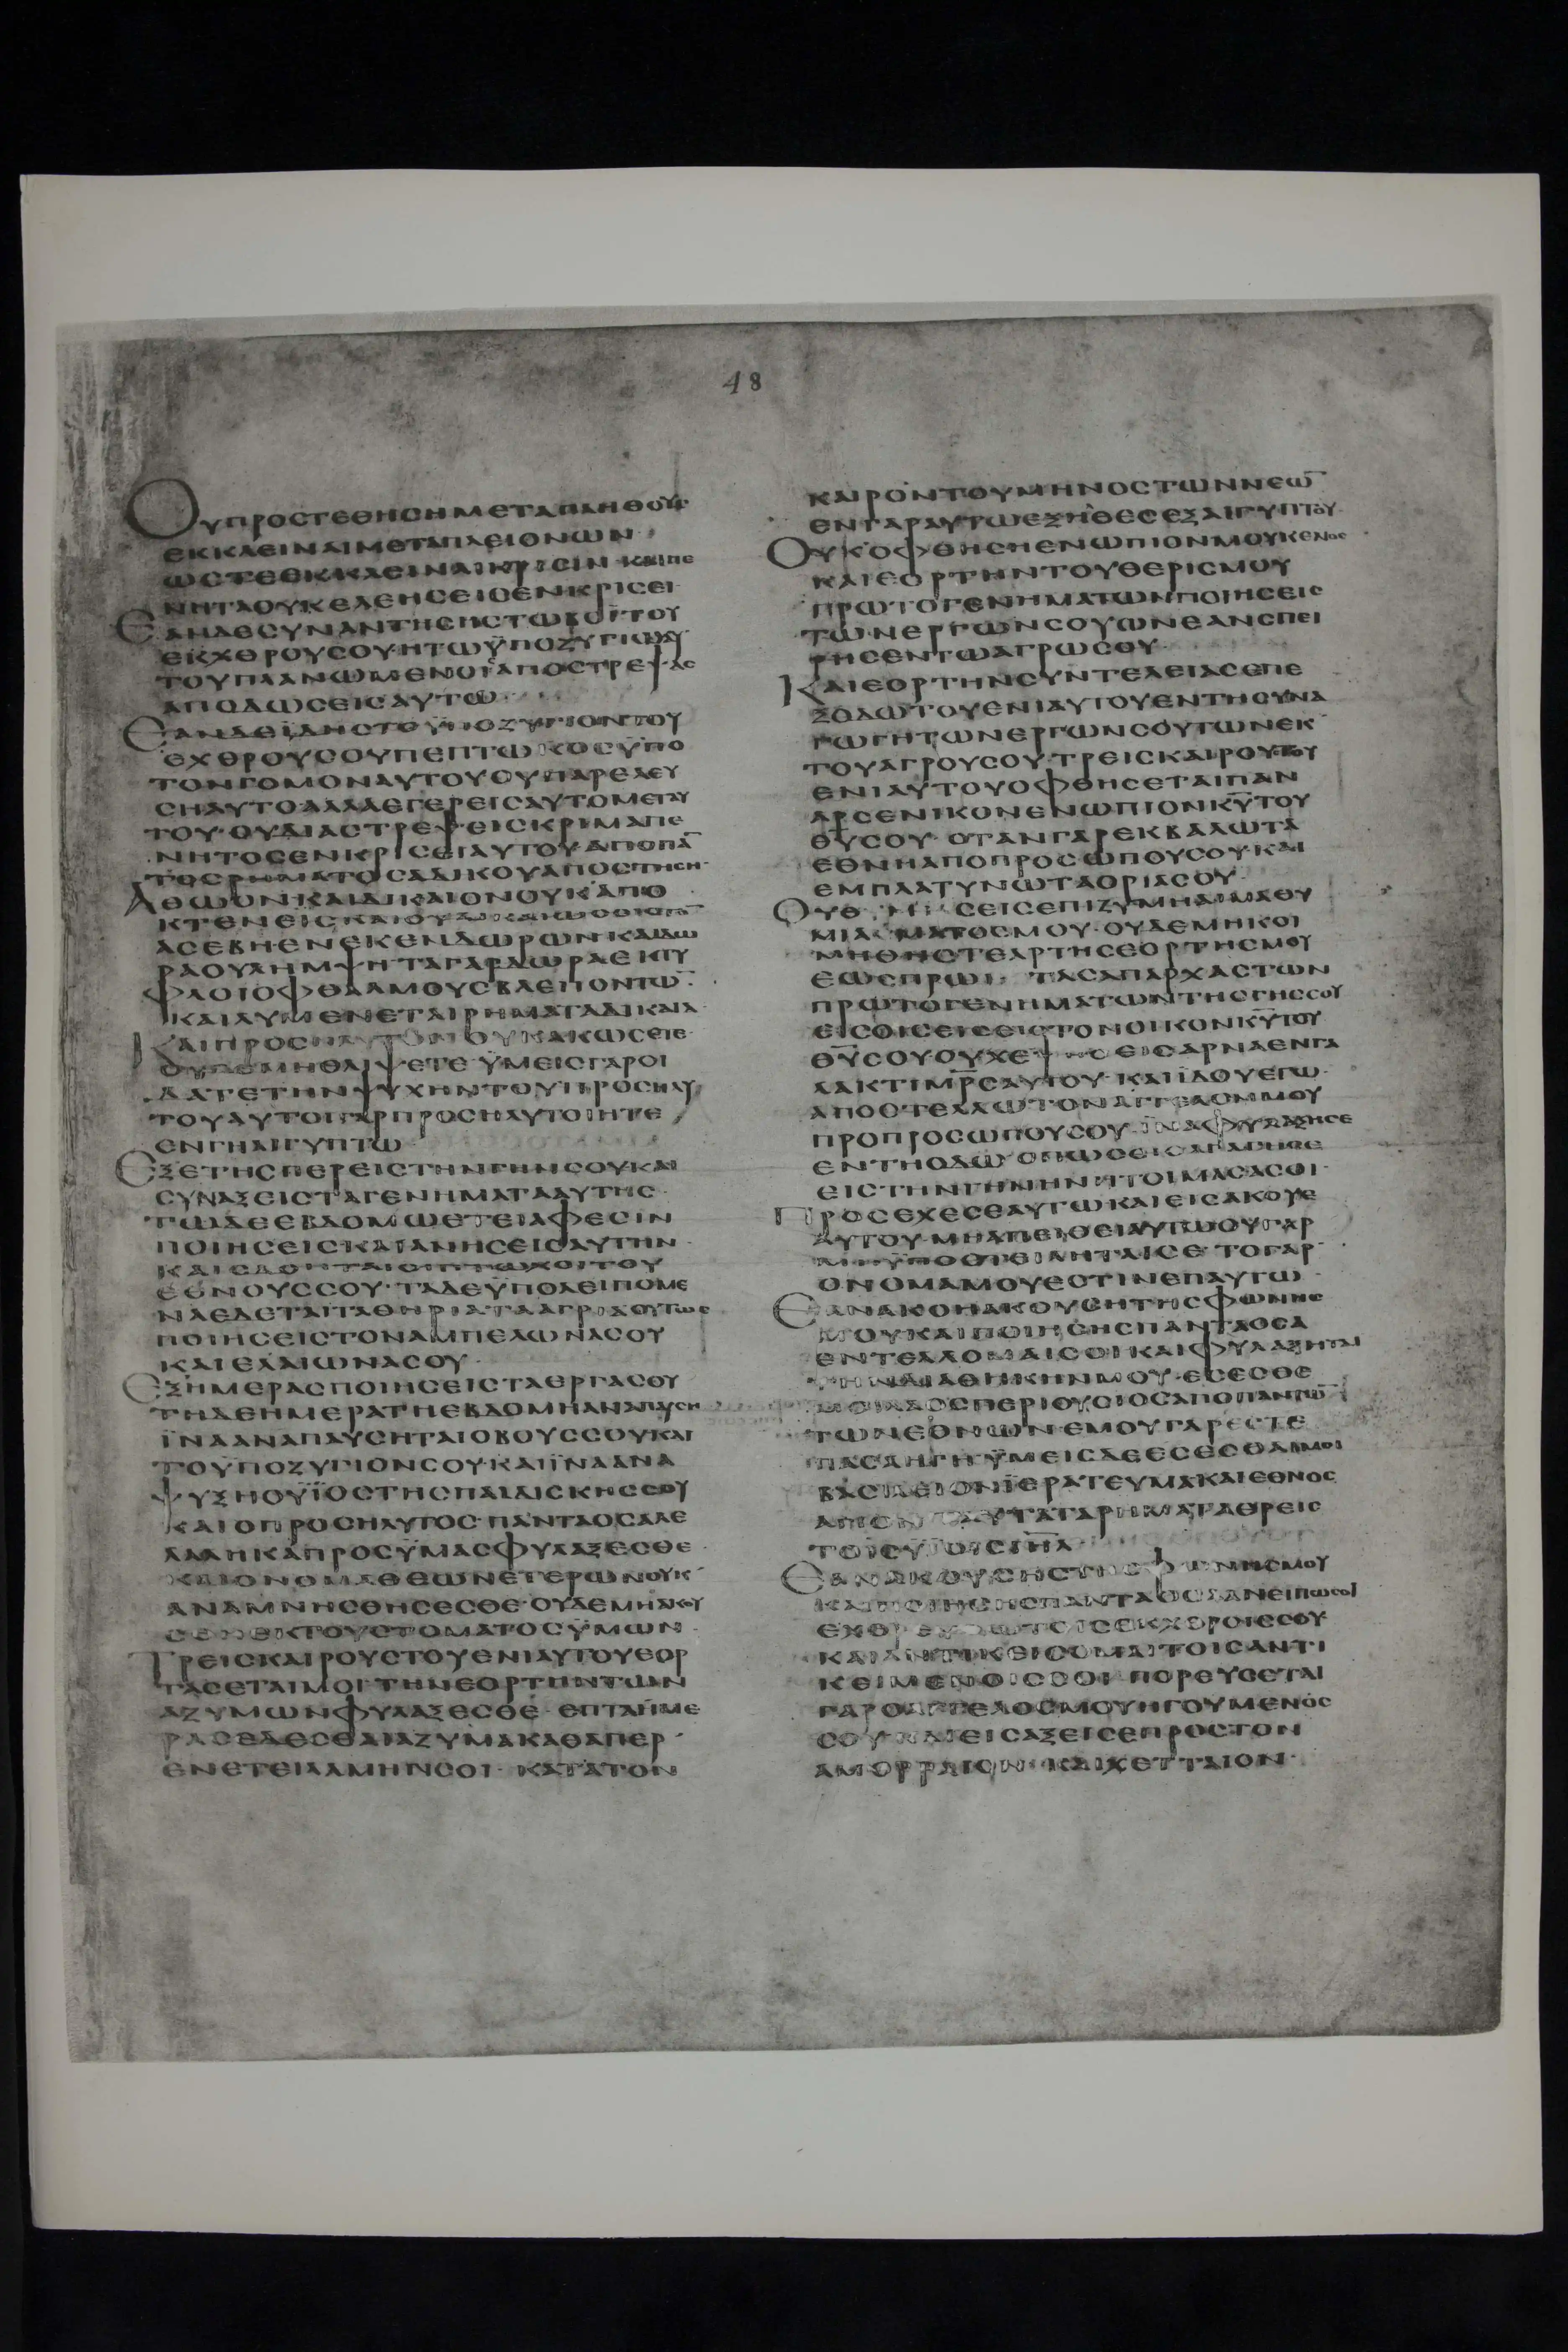 48
ΟΥΠΡΟΣΤΕΘΗCΗΜΕΤΑΠΛΗΘΟΥC
ΕΚΚΛΕΙΝΑΙΜΕΤΑΠΛΕΙΟΝΩΝ
ΩCΤΕΕΚΚΛΕΙΝΑΙΚΡΙCΙΝ·ΚΑΙΠΕ
ΝΗΤΑΟΥΚΕΛΕΗCΕΙCΕΝΚΡΙCΕΙ·
ΕΑΝΔΕCΥΝΑΝΤΗCΗCΤΩΒΟΪΤΟΥ
ΕΚΧΘΡΟΥCΟΥ·ΗΤΩΫΠΟΖΥΓΙΩΑΥ
ΤΟΥΠΛΑΝΩΜΕΝΟΙCΑΠΟCΤΡΕΨΑC
ΑΠΟΔΩCΕΙCΑΥΤΩ·
ΕΑΝΔΕΪΔΗCΤΟΫΠΟΖΥΓΙΟΝΤΟΥ
ΕΧΘΡΟΥCΟΥΠΕΠΤΩΚΟCΫΠΟ
ΤΟΝΓΟΜΟΝΑΥΤΟΥΟΥΠΑΡΕΛΕΥ
CΗΑΥΤΟ·ΑΛΛΑΕΓΕΡΕΙCΑΥΤΟΜΕΤΑΥ
ΤΟΥ·ΟΥΔΙΑCΤΡΕΨΕΙCΚΡΙΜΑΠΕ
ΝΗΤΟCΕΝΚΡΙCΕΙΑΥΤΟΥ·ΑΠΟΠΑ̅
ΤΟCΡΗΜΑΤΟCΑΔΙΚΟΥΑΠΟCΤΗCΗ·
ΑΘΩΟΝΚΑΙΔΙΚΑΙΟΝΟΥΚΑΠΟ
ΚΤΕΝΕΙC·ΚΑΙΟΥΔΙΚΑΙΩCΕΙCΤΟ̅
ΑCΕΒΗ·ΕΝΕΚΕΝΔΩΡΩΝ·ΚΑΙΔΩ
ΡΑΟΥΛΗΜΨΗ·ΤΑΓΑΡΔΩΡΑΕΚΤΥ
ΦΛΟΙΟΦΘΑΛΜΟΥCΒΛΕΠΟΝΤΩ̅·
ΚΑΙΛΥΜΕΝΕΤΑΙΡΗΜΑΤΑΔΙΚΑΙΑ·
ΚΑΙΠΡΟCΗΛΥΤΟΝΟΥΚΑΚΩCΕΤΕ·
ΟΥΔΕΜΗΘΛΙΨΕΤΕ·ΫΜΕΙCΓΑΡΟΙ
ΔΑΤΕΤΗΝΨΥΧΗΝΤΟΥΠΡΟCΗΛΥ
ΤΟΥΑΥΤΟΙΓΑΡΠΡΟCΗΛΥΤΟΙΗΤΕ
ΕΝΓΗΑΙΓΥΠΤΩ
ΕΞΕΤΗCΠΕΡΕΙCΤΗΝΓΗΝCΟΥΚΑΙ
CΥΝΑΞΕΙCΤΑΓΕΝΗΜΑΤΑΑΥΤΗC·
ΤΩΔΕΕΒΔΟΜΩΕΤΕΙΑΦΕCΙΝ
ΠΟΙΗCΕΙC·ΚΑΙΑΝΗCΕΙCΑΥΤΗΝ·
ΚΑΙΕΔΟΝΤΑΙΟΙΠΤΩΧΟΙΤΟΥ
ΕΘΝΟΥCCΟΥ·ΤΑΔΕΫΠΟΛΕΙΠΟΜΕ
ΝΑΕΔΕΤΑΙΤΑΘΗΡΙΑΤΑΑΓΡΙΑΟΥΤΩC
ΠΟΙΗCΕΙCΤΟΝΑΜΠΕΛΩΝΑCΟΥ
ΚΑΙΕΛΑΙΩΝΑCΟΥ·
ΕΞΗΜΕΡΑCΠΟΙΗCΕΙCΤΑΕΡΓΑCΟΥ
ΤΗΔΕΗΜΕΡΑΤΗΕΒΔΟΜΗΑΝΑΠΑΥCΗ
ΪΝΑΑΝΑΠΑΥCΗΤΑΙΟΒΟΥCCΟΥΚΑΙ
ΤΟΫΠΟΖΥΓΙΟΝCΟΥ·ΚΑΙΪΝΑΑΝΑ
ΨΥΞΗΟΫΪΟCΤΗCΠΑΙΔΙCΚΗCCΟΥ
ΚΑΙΟΠΡΟCΗΛΥΤΟC·ΠΑΝΤΑΟCΑΛΕ
ΛΑΛΗΚΑΠΡΟCΫΜΑCΦΥΛΑΞΕCΘΕ·
ΚΑΙΟΝΟΜΑΘΕΩΝΕΤΕΡΩΝΟΥΚ
ΑΝΑΜΝΗCΘΗCΕCΘΕ·ΟΥΔΕΜΗΑΚΟΥ
CΘΗΕΚΤΟΥCΤΟΜΑΤΟCΫΜΩΝ·
ΤΡΕΙCΚΑΙΡΟΥCΤΟΥΕΝΙΑΥΤΟΥΕΟΡ
ΤΑCΕΤΑΙΜΟΙ·ΤΗΝΕΟΡΤΗΝΤΩΝ
ΑΖΥΜΩΝΦΥΛΑΞΕCΘΕ·ΕΠΤΑΗΜΕ
ΡΑCΕΔΕCΘΑΙΑΖΥΜΑΚΑΘΑΠΕΡ
ΕΝΕΤΕΙΛΑΜΗΝCΟΙ·ΚΑΤΑΤΟΝ
ΚΑΙΡΟΝΤΟΥΜΗΝΟCΤΩΝΝΕΩ̅
ΕΝΓΑΡΑΥΤΩΕΞΗΛΘΕCΕΞΑΙΓΥΠΤΟΥ·
ΟΥΚΟΦΘΗCΗΕΝΩΠΙΟΝΜΟΥΚΕΝΟC
ΚΑΙΕΟΡΤΗΝΤΟΥΘΕΡΙCΜΟΥ
ΠΡΩΤΟΓΕΝΗΜΑΤΩΝΠΟΙΗCΕΙC
ΤΩΝΕΡΓΩΝCΟΥΩΝΕΑΝCΠΕΙ
ΡΗCΕΝΤΩΑΓΡΩCΟΥ·
ΚΑΙΕΟΡΤΗΝCΥΝΤΕΛΕΙΑCΕΠΕ
ΞΟΔΩΤΟΥΕΝΙΑΥΤΟΥΕΝΤΗCΥΝΑ
ΓΩΓΗΤΩΝΕΡΓΩΝCΟΥΤΩΝΕΚ
ΤΟΥΑΓΡΟΥCΟΥ·ΤΡΕΙCΚΑΙΡΟΥCΤΟΥ
ΕΝΙΑΥΤΟΥΟΦΘΗCΕΤΑΙΠΑΝ
ΑΡCΕΝΙΚΟΝΕΝΩΠΙΟΝΚ̅Υ̅ΤΟΥ
Θ̅Υ̅CΟΥ·ΟΤΑΝΓΑΡΕΚΒΑΛΩΤΑ
ΕΘΝΗΑΠΟΠΡΟCΩΠΟΥCΟΥ·ΚΑΙ
ΕΜΠΛΑΤΥΝΩΤΑΟΡΙΑCΟΥ·
ΟΥΘΥCΕΙCΕΠΙΖΥΜΗΑΙΜΑΘΥ
ΜΙΑΜΑΤΟCΜΟΥ·ΟΥΔΕΜΗΚΟΙ
ΜΗΘΗCΤΕΑΡΤΗCΕΟΡΤΗCΜΟΥ
ΕΩCΠΡΩΙ· ΤΑCΑΠΑΡΧΑCΤΩΝ
ΠΡΩΤΟΓΕΝΗΜΑΤΩΝΤΗCΓΗCCΟΥ
ΕΙCΟΙCΕΙCΕΙCΤΟΝΟΙΚΟΝΚ̅Υ̅ΤΟΥ
Θ̅Υ̅CΟΥ·ΟΥΧΕΨΗCΕΙCΑΡΝΑΕΝΓΑ
ΛΑΚΤΙΜ̅Ρ̅C̅ΑΥΤΟΥ·ΚΑΙΪΔΟΥΕΓΩ
ΑΠΟCΤΕΛΛΩΤΟΝΑΓΓΕΛΟΜΜΟΥ
ΠΡΟΠΡΟCΩΠΟΥCΟΥ·ΪΝΑΦΥΛΑΞΗCΕ
ΕΝΤΗΟΔΩ·ΟΠΩCΕΙCΑΓΑΓΗCΕ
ΕΙCΤΗΝΓΗΝΗΝΗΤΟΙΜΑCΑCΟΙ·
ΠΡΟCΕΧΕCΕΑΥΤΩΚΑΙΕΙCΑΚΟΥΕ
ΑΥΤΟΥ·ΜΗΑΠΕΙΘΕΙΑΥΤΩΟΥΓΑΡ
ΜΗΫΠΟCΤΕΙΛΗΤΑΙCΕ·ΤΟΓΑΡ
ΟΝΟΜΑΜΟΥΕCΤΙΝΕΠΑΥΤΩ·
ΕΑΝΑΚΟΗΑΚΟΥCΗΤΗCΦΩΝΗC
ΜΟΥΚΑΙΠΟΙΗCΗCΠΑΝΤΑΟCΑ
ΕΝΤΕΛΛΟΜΑΙCΟΙΚΑΙΦΥΛΑΞΗΤΑΙ
ΤΗΝΔΙΑΘΗΚΗΝΜΟΥ·ΕCΕCΘΕ
ΜΟΙΛΑΟCΠΕΡΙΟΥCΙΟCΑΠΟΠΑΝΤΩ̅
ΤΩΝΕΘΝΩΝ·ΕΜΟΥΓΑΡΕCΤΕ
ΠΑCΑΗΓΗ·ΫΜΕΙCΔΕΕCΕCΘΑΙΜΟΙ
ΒΑCΙΛΕΙΟΝΪΕΡΑΤΕΥΜΑΚΑΙΕΘΝΟC
ΑΓΙΟΝ·ΤΑΥΤΑΤΑΡΗΜΑΤΑΕΡΕΙC
ΤΟΙCΫΪΟΙCΙ̅Η̅Λ̅
ΕΑΝΑΚΟΥCΗCΤΗCΦΩΝΗCΜΟΥ
ΚΑΙΠΟΙΗCΗCΠΑΝΤΑΟCΑΑΝΕΙΠΩCΟΙ
ΕΧΘΡΕΥCΩΤΟΙCΕΚΧΘΡΟΙCCΟΥ·
ΚΑΙΑΝΤΙΚΕΙCΟΜΑΙΤΟΙCΑΝΤΙ
ΚΕΙΜΕΝΟΙCCΟΙ·ΠΟΡΕΥCΕΤΑΙ
ΓΑΡΟΑΓΓΕΛΟCΜΟΥΗΓΟΥΜΕΝΟC
CΟΥ·ΚΑΙΕΙCΑΞΕΙCΕΠΡΟCΤΟΝ
ΑΜΟΡΡΑΙΟΝ·ΚΑΙΧΕΤΤΑΙΟΝ·